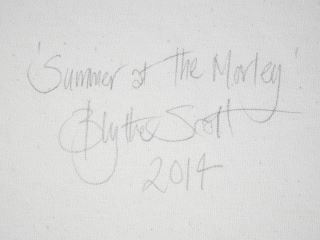 'Summer at the Morley'
Blythe Scott
2014